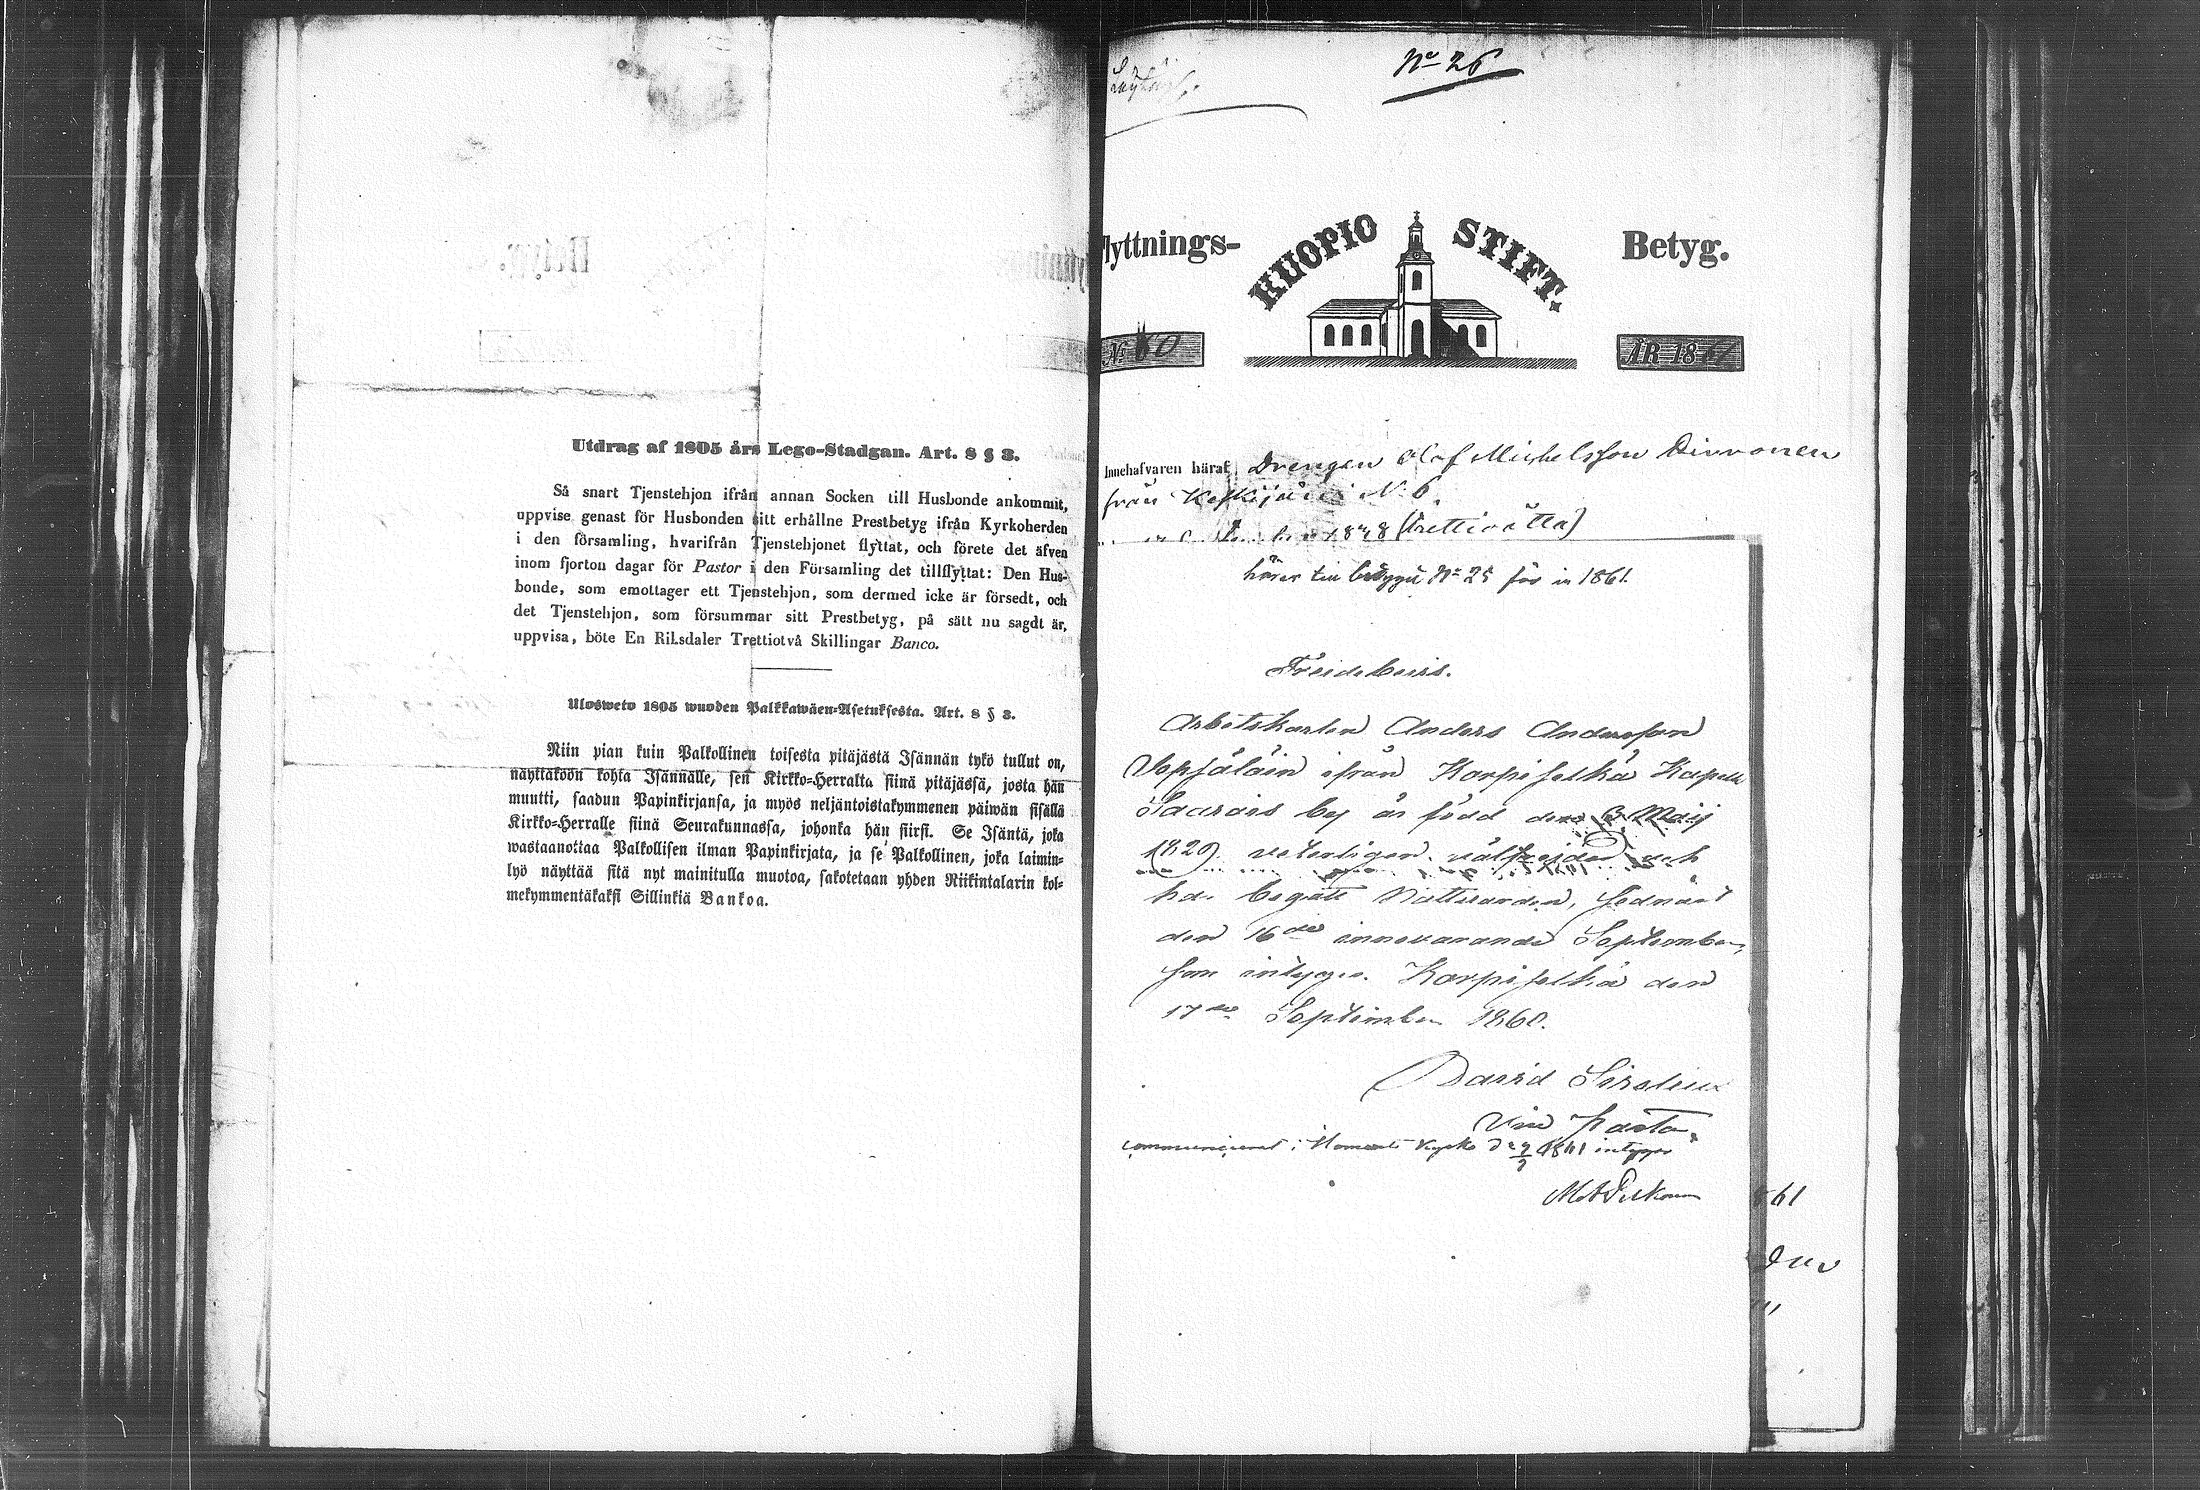 Utdrag af 1805 års Lego-Stadgan. Art. 8 § 3.
Så snart Tjenstehjon ifrån annan Socken till Husbonde ankommit,
uppvise genast för Husbonden sitt erhållne Prestbetyg ifrån Kyrkoherden
i den församling, hvarifrån Tjenstehjonet flyttat, och förete det äfven
inom fjorton dagar för Pastor i den Församling det tillflyttat: Den Hus-
bonde, som emottager ett Tjenstehjon, som dermed icke är försedt, och
det Tjenstehjon, som försummar sitt Prestbetyg, på sätt nu sagdt är,
uppvisa, böte En Riksdaler Trettiotvå Skillingar Banco.
Ulosweto 1805 wuoden Palkkawäen-Asetuksesta. Art. 8 § 3.
Niin pian kuin Palkollinen toisesta pitäjästä Isännän tykö tullut on,
näyttäköön kohta Isännälle, sen Kirkko-Herralta siinä pitäjässä, josta hän
muutti, saadun Papinkirjansa, ja myös neljäntoistakymmenen päiwän sisällä
Kirkko-Herralle siinä Seurakunnassa, johonka hän siirsi. Se Isäntä, joka
wastaanottaa Palkollisen ilman Papinkirjata, ja se Palkollinen, joka laimin-
lyö näyttää sitä nyt mainitulla muotoa, sakotetaan yhden Riikintalarin kol-
mekymmentäkaksi Sillinkiä Bankoa.
No 26
lyttnings- KUOPIO STIFT. Betyg.
No 60 ÅR 18
Innehafvaren häraf Drengen Olof Michelsson
från N: 6.
1838 (trettioåtta)
hörer till betyget No 25 för in 1861.
Freidebevis.
Arbetskarlen Anders Andersson
ifrån Korpiselkä Kapell
Saarois by är född den 3 Maij
1820. veterligen välfrejdad och
har begått Nattvarden, sednast
den 16de innevarande September,
som intygas. Korpiselkä den
17de September 1860.
David Sirelius
Vice Pastor
communicerat i Ilomants Kyrka d 2/9 1861 intygar
61